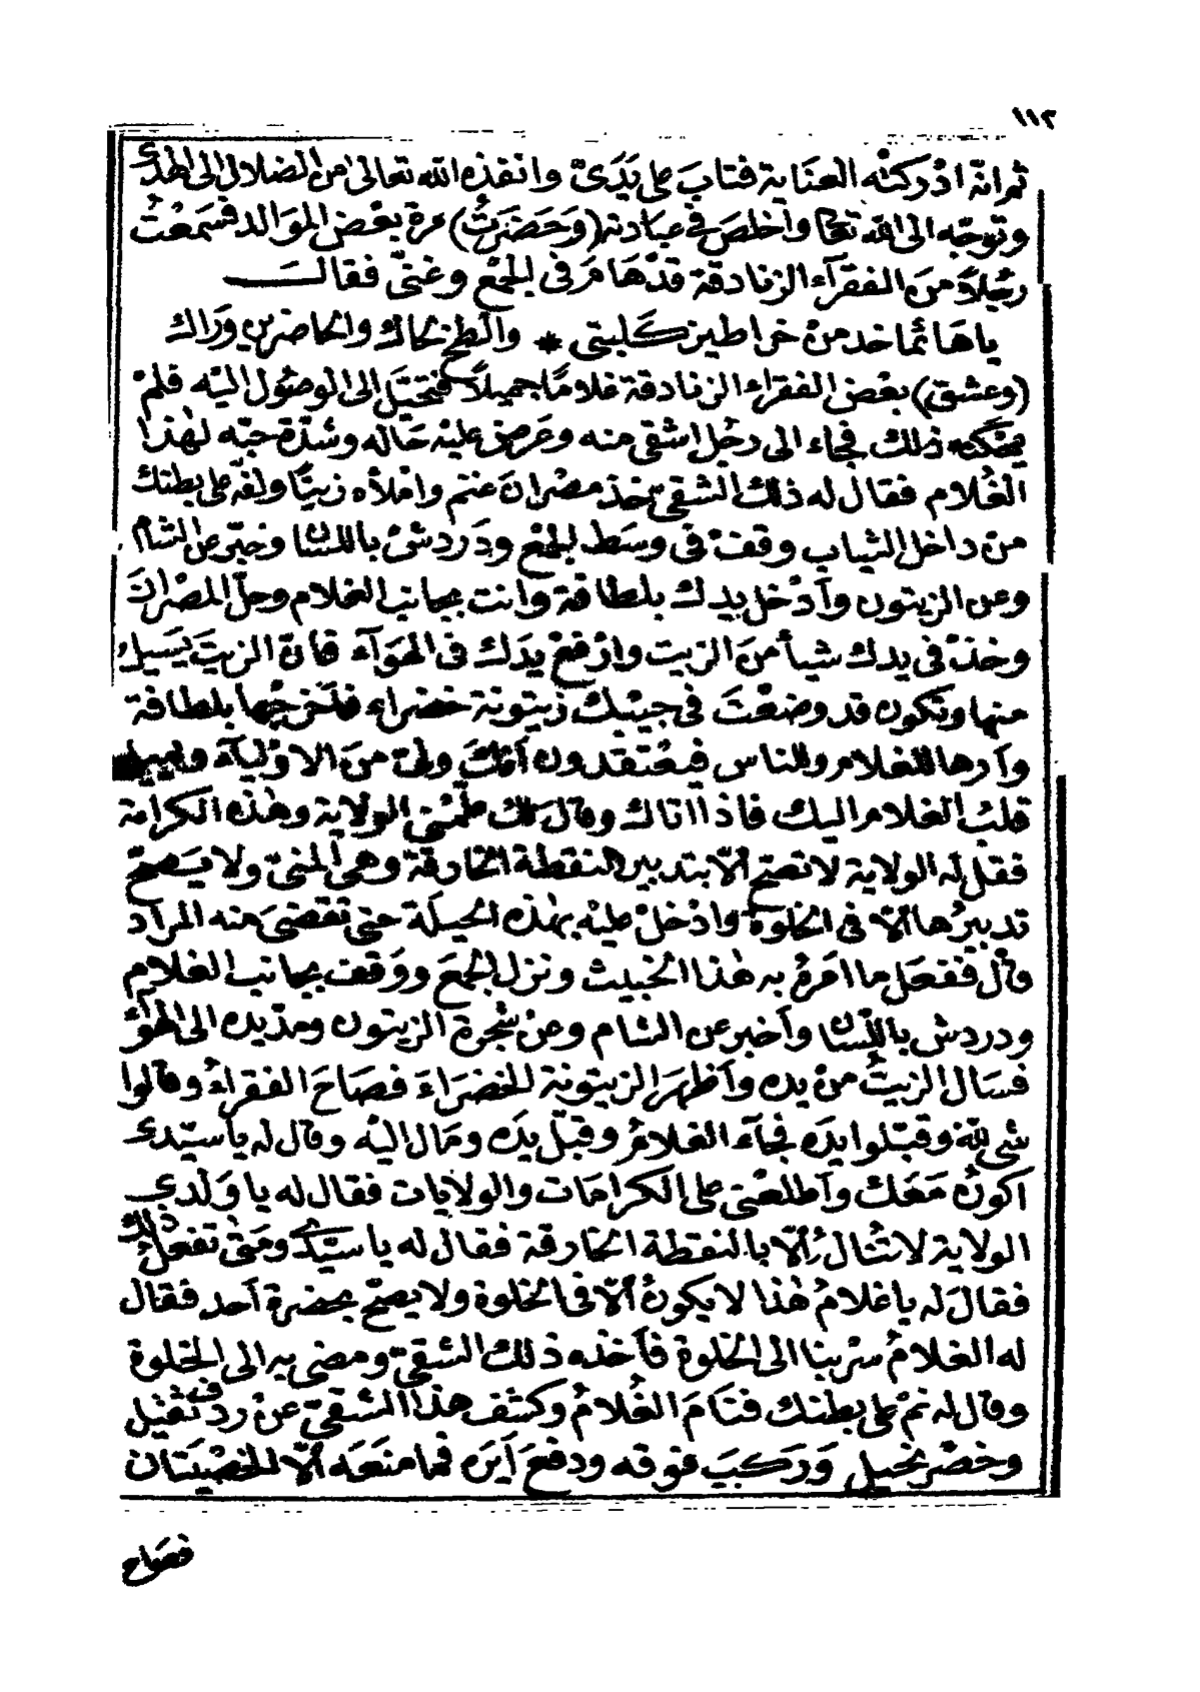 ١١٢
ثم انّه ادْركتْه العنَاية فتابَ على يَدَىّ وانقذه الله تعالى من الضلال الى الهدى
وتوجّه الى الله تعالى واخلصَ فى عبادته (وَحَضَرتُ) مرة بعْض الموَالد فسَمعْتُ
رجُلاً منَ الفقرآء الزنادقة قدْ هَامَ فى الجمْع وغنّى فقالــ
ياهَائما خد منْ خراطيز كَلبتى * والطخ لحاك والحاضرين ورَاك
(وعشق) بعْض الفقراء الزنادقة غلامًا جميلاً فتحيّل الى الوصُول اليْه فلمْ
يمكنه ذلك فجاء الى رجُل اشقى منه وعرض عليْه حَاله وشدّة حبّه لهٰذا
الغُلام فقال له ذلك الشقىّ خذ مصْران غنم وامْلأه زيتًا ولفّه على بطنك
منْ داخل الثياب وقفْ فى وسَط الجمْع ودَردشْ باللسَان وخبّر عن الشام
وعن الزيتون وآدْخل يدك بلطافة وانت بجانب الغلام وحلّ المصْران
وخذْ فى يدك شيأ منَ الزيت وارْفعْ يدَك فى الهوَآء فانّ الزيتَ يَسيل
منها وتكون قد وضعْتَ فى جيْبك زيتونة خضراء فآخرجْها بلطافة
وآرها للغلام وللناس فيعْتقدون آنّك ولىّ منَ الاوْليآء ويميل
قلبُ الغلام اليك فاذا اتاك وقال لك علّمْنى الولاية وهٰذه الكرامة
فقل له الولاية لا تصحّ الّا بتدبير النقطة الخارقة وهى المنىّ ولا يَصحّ
تدبيرُها الّا فى الخلوَة وادْخلْ عليْه بهٰذه الحيلَة حتى تقضىَ منه المراد
قال ففعَل ما امَرهُ به هٰذا الخبيث ونزل الجمْعَ ووَقف بجانب الغلام
ودردش باللسَان وآخبر عن الشام وعنْ شجرة الزيتون ومدّ يده الى الهوَآء
فسَال الزيتُ منْ يده وآظهرَ الزيتونة الخضرَاءَ فصَاحَ الفقراءُ وقالوا
شى لله وقبّلوا يدَه فجآء الغلامُ وقبّل يدَه ومَال اليْه وقال له يا سيّدى
آكونُ مَعَك وآطلعْنى على الكرامَات والولايات فقال له يا وَلدى
الولاية لا تنال الّا بالنقطة الخارقة فقال له يا سيّدى ومَتى تفعلُ ذلك
فقالَ له يا غلامُ هٰذا لا يكونُ الّا فى الخلوة ولا يصحّ بحضرة آحد فقال
له الغلامُ سرْ بنا الى الخلوة فآخذه ذلك الشقىّ ومضى به الى الخلوة
وقال له نمْ على بطنك فنَامَ الغُلامُ وكشف هٰذا الشقىّ عنْ ردْف ثقيل
وخصْر نحيل وَرَكبَ فوقه ودفعَ آيرَه فما منعَه الّا الخصْيَتان
فصَاح